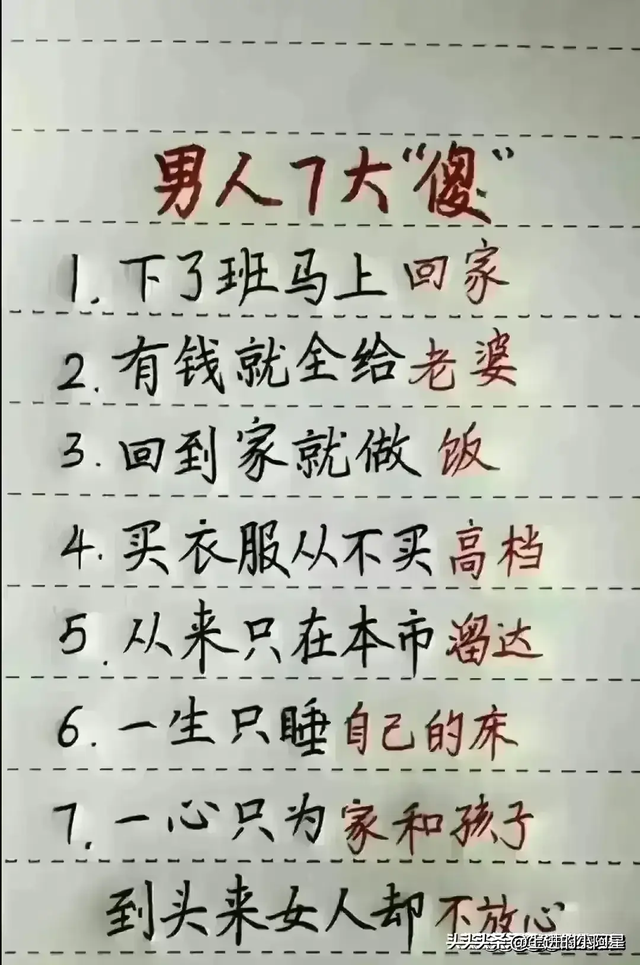 男人7大“傻”
1. 下了班马上回家
2. 有钱就全给老婆
3. 回到家就做饭
4. 买衣服从不买高档
5. 从来只在本市溜达
6. 一生只睡自己的床
7. 一心只为家和孩子
到头来女人却不放心